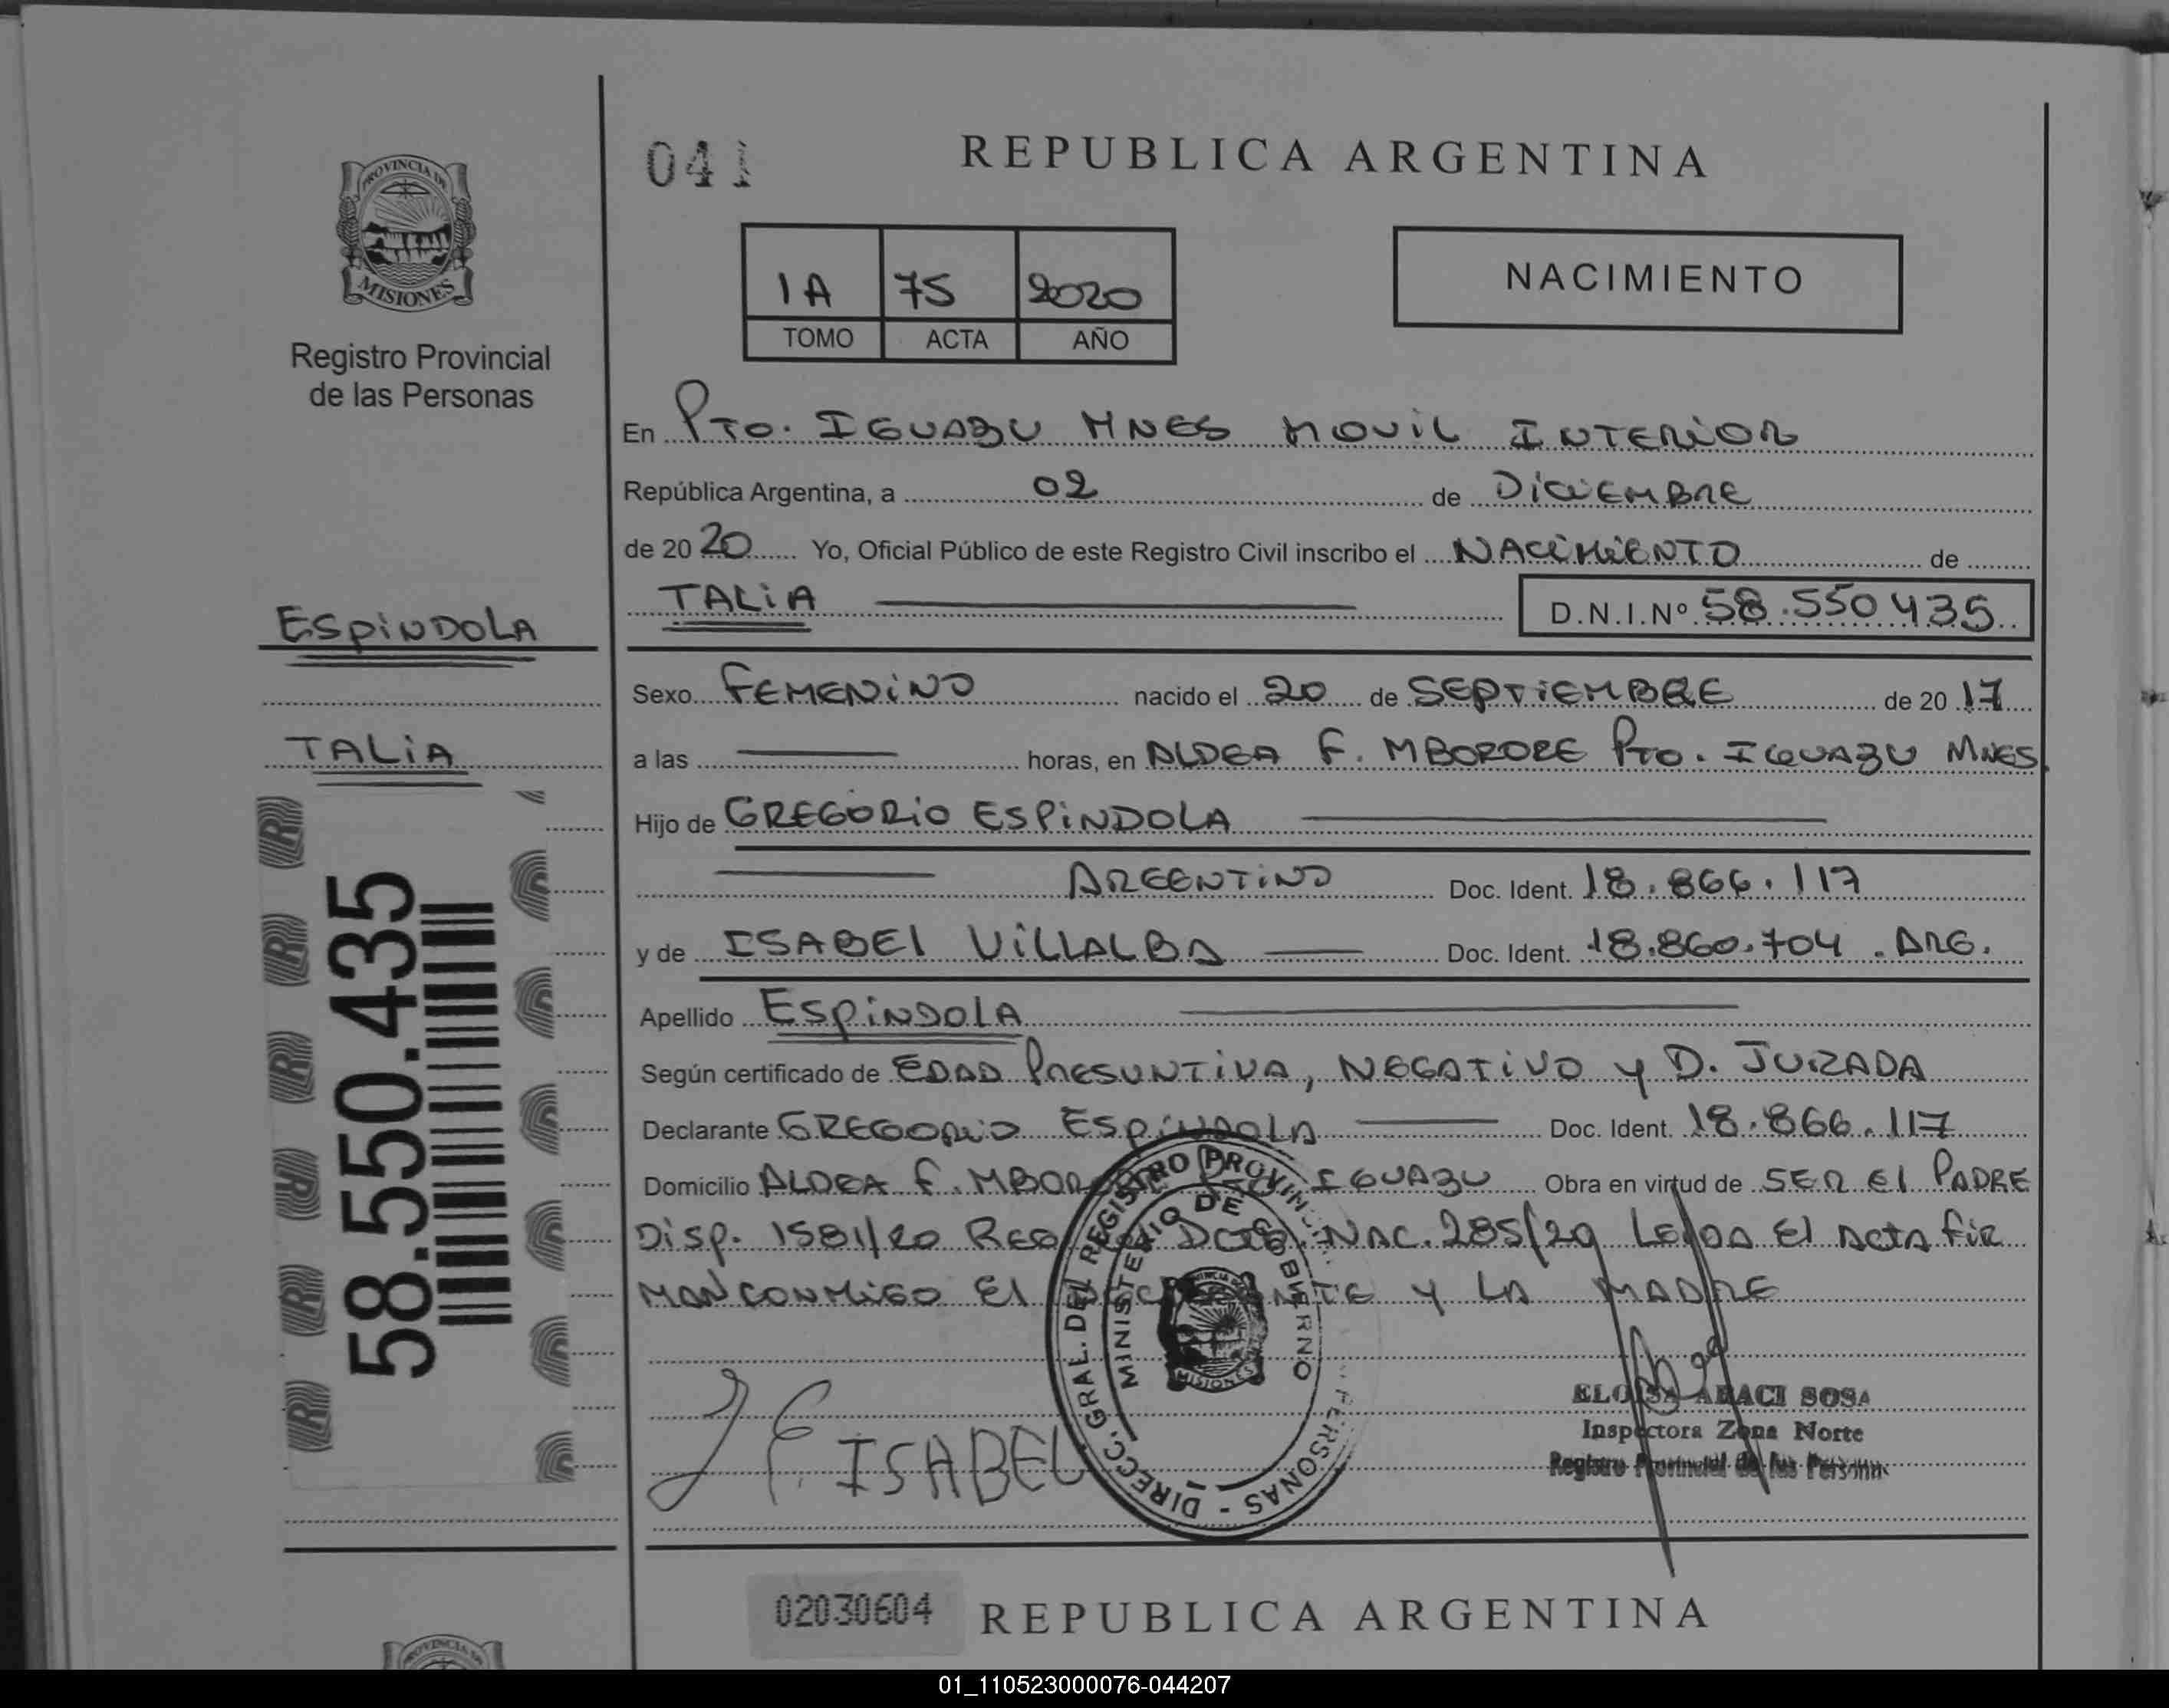 041
REPUBLICA ARGENTINA
PROVINCIA DE
MISIONES
Registro Provincial
de las Personas
1A 75 2020
TOMO ACTA AÑO
NACIMIENTO
En PTO. IGUAZU MNES MOVIL INTERIOR
República Argentina, a 02 de DICIEMBRE
de 2020 Yo, Oficial Público de este Registro Civil inscribo el NACIMIENTO de
TALIA D.N.I.Nº 58.550.435
ESPINDOLA
TALIA
58.550.435
Sexo FEMENINO nacido el 20 de SEPTIEMBRE de 2017
a las horas, en ALDEA F. MBORORE PTO. IGUAZU MNES
Hijo de GREGORIO ESPINDOLA
ARGENTINO Doc. Ident. 18.866.117
y de ISABEL VILLALBA Doc. Ident. 18.860.704 . ARG.
Apellido ESPINDOLA
Según certificado de EDAD PRESUNTIVA, NEGATIVO y D. JURADA
Declarante GREGORIO ESPINDOLA Doc. Ident. 18.866.117
Domicilio ALDEA F. MBORORE PTO IGUAZU Obra en virtud de SER El PADRE
DISP. 1581/20 REG DCTO. NAC. 285/20 LEIDA El ACTA FIR
MAN CONMIGO El DECLARANTE Y LA MADRE
DIRECC. GRAL. DEL REGISTRO PROVINC PERSONAS -
MINISTERIO DE GOBIERNO
MISIONES
ISABEL
ELOISA ABACI SOSA
Inspectora Zona Norte
Registro Provincial de las Personas
02030604 REPUBLICA ARGENTINA
01_110523000076-044207